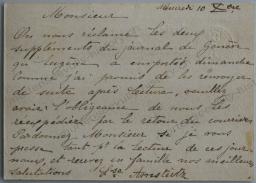 Mercredi 10 Xbre
Monsieur
On nous réclame les deux
suppléments du journal de Genève
qu'Eugène a emportés dimanche
comme j'ai promis de les renvoyer
de suite après lecture, veuillez
avoir l'obligeance de nous les
réexpédier par le retour du courrier
Pardonnez Monsieur si je vous
presse tant p. la lecture de ces jour-
naux, et recevez en famille nos meilleures
salutations